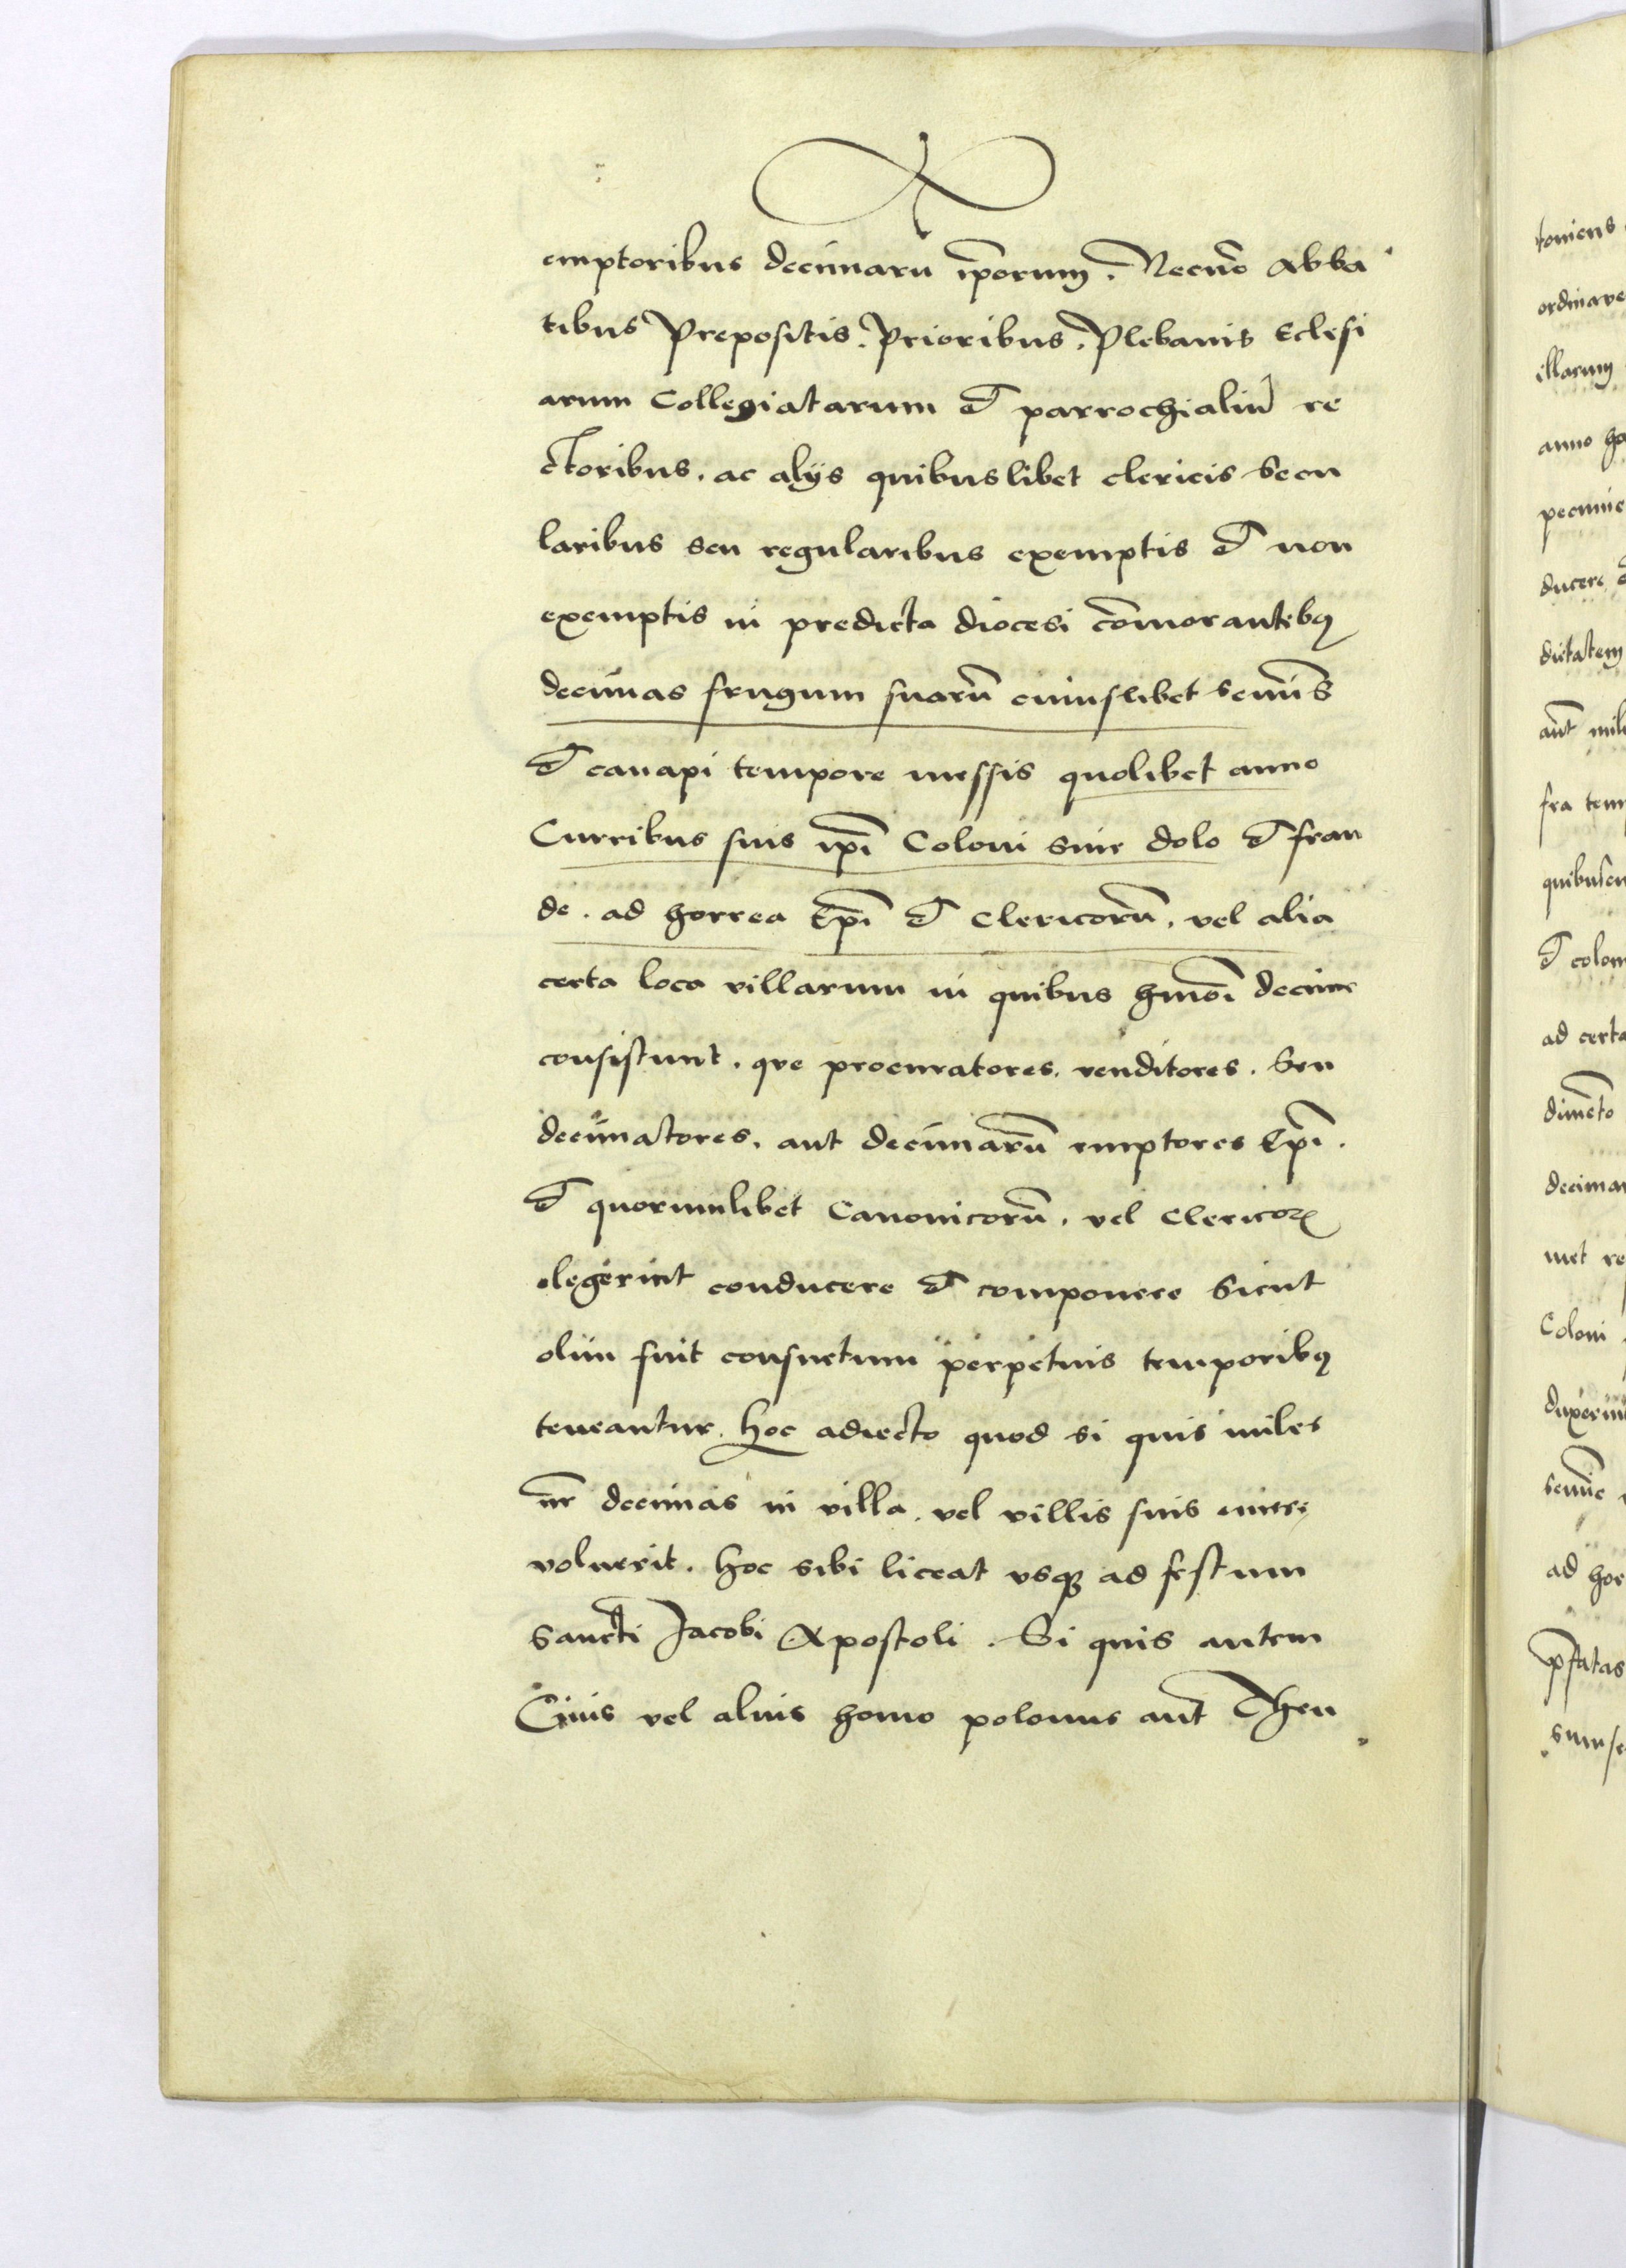 emptoribus decimaru ip̄orum. Necnō Abba
tibus Prepositis. Prioribus. Plebanis Eclesi
arum Collegiatarum et parrochialiū re
ctoribus. ac alijs quibuslibet clericis Secu
laribus seu regularibus exemptis et non
exemptis in predicta diocesi cōmorantibꝯ
decimas frugum suarū cuiuslibet seminis
et canapi tempore messis quolibet anno
Curribus suis ip̄i Coloni sine dolo et frau
de. ad horrea Ep̄i et Clericorū. vel alia
certa loca villarum in quibus hmōi decime
consistunt. que procuratores. venditores. Seu
decimatores. aut decimarū emptores Ep̄i.
et quorumlibet Canonicorū. vel Clericoꝝ
elegerint conducere et componere Sicut
olim fuit consuetum perpetuis temporibꝯ
teneantur. Hoc adiecto quod si quis miles
vr̄ decimas in villa. vel villis suis emere
voluerit. Hoc sibi liceat usqꝫ ad festum
Sancti Jacobi Apostoli. Si quis autem
Ciuis vel alius homo polonus aut Theu
ordinare
illarum
anno
ducere
ad certa
Coloni